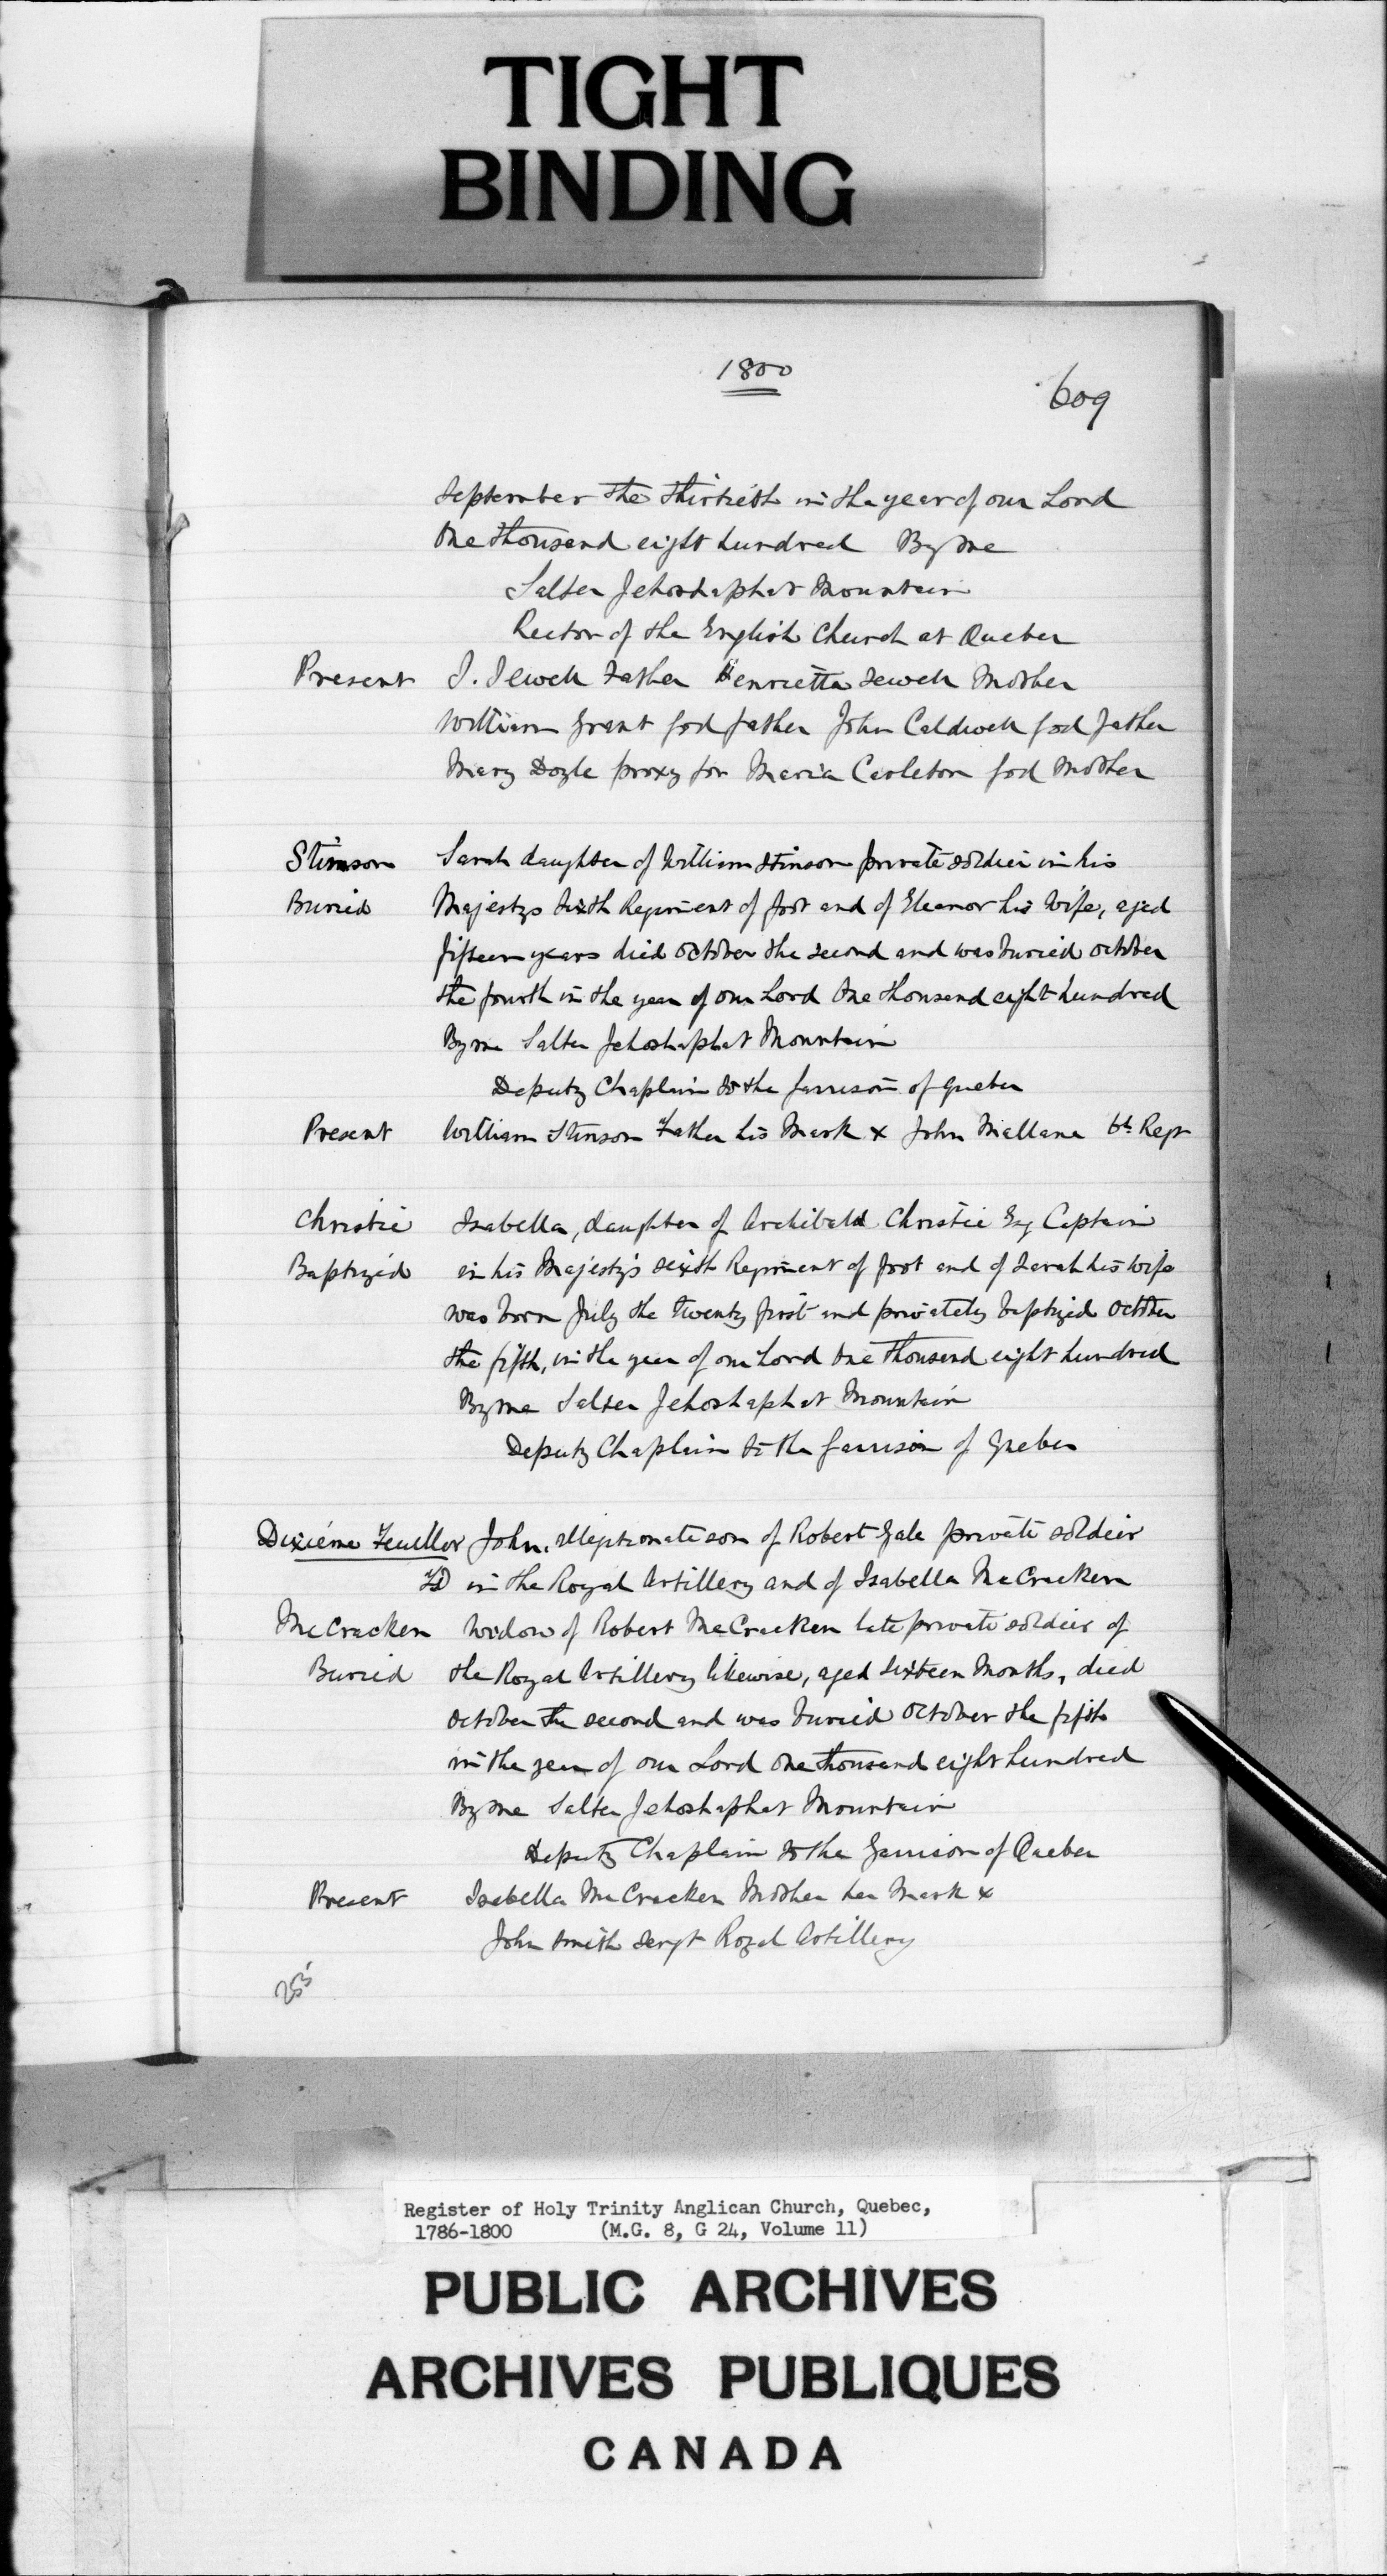 TIGHT
BINDING
1800
609
September the thirtieth in the year of our Lord
One thousand eight hundred By me
Salter Jehoshaphat Mountain
Rector of the English Church at Quebec
Present J. Sewell Father Henrietta Sewell Mother
William Grant God father John Caldwell God father
Mary Doyle proxy for Maria Carleton God Mother
Stinson Sarah daughter of William Stinson private soldier in his
Buried Majestys Sixth Regiment of foot and of Eleanor his Wife, aged
fifteen years died October the second and was buried October
the fourth in the year of our Lord One thousand eight hundred
By me Salter Jehoshaphat Mountain
Deputy Chaplain to the Garrison of Quebec
Present William Stinson Father his Mark x John Mallane 6th Regt
Christie Isabella, daughter of Archibald Christie Esq Captain
Baptized in his Majesty's sixth Regiment of foot and of Sarah his wife
was born July the twenty first and privately baptized October
the fifth, in the year of our Lord One thousand eight hundred
By me Salter Jehoshaphat Mountain
Deputy Chaplain to the Garrison of Quebec
Dixiéme Feuillet John, illegitimate son of Robert Gale private soldier
in the Royal Artillery and of Isabella McCracken
McCracken Widow of Robert McCracken late private soldier of
Buried the Royal Artillery likewise, aged sixteen Months, died
October the second and was buried October the fifth
in the year of our Lord One thousand eight hundred
By me Salter Jehoshaphat Mountain
Deputy Chaplain to the Garrison of Quebec
Present Isabella McCracken Mother her Mark x
John Smith Sergt Royal Artillery
Register of Holy Trinity Anglican Church, Quebec,
1786-1800 (M.G. 8, G 24, Volume 11)
PUBLIC ARCHIVES
ARCHIVES PUBLIQUES
CANADA